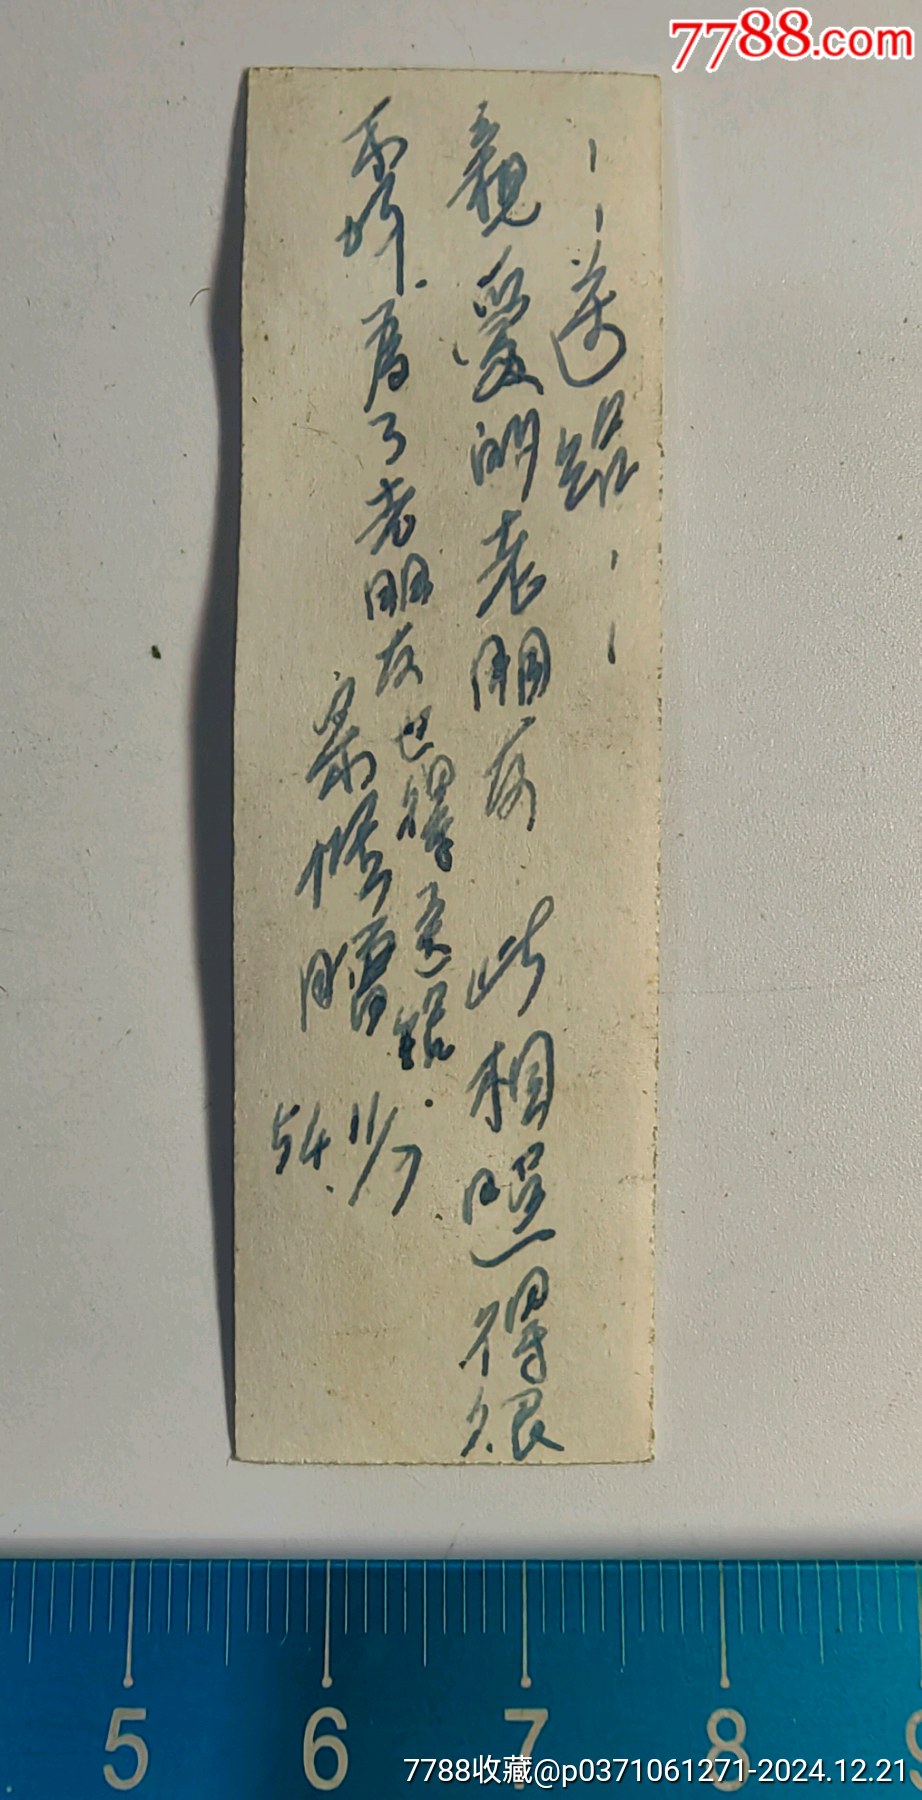 7788.com
——送给——
親愛的老朋友 此相照得很
不好.為了老朋友也得送給.
贈
54.11/7
5 6 7 8 9
7788收藏@p0371061271-2024.12.21